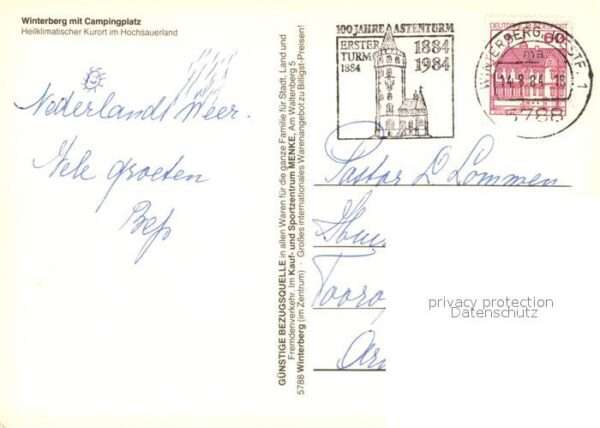 Winterberg mit Campingplatz
Heilklimatischer Kurort im Hochsauerland
Nederlands Weer.
Vele groeten
Bep
GÜNSTIGE BEZUGSQUELLE in allen Waren für die ganze Familie für Stadt, Land und
Fremdenverkehr. Im Kauf- und Sportzentrum MENKE, Am Waltenberg 5
5788 Winterberg (im Zentrum) · Großes internationales Warenangebot zu Billigst-Preisen!
100 JAHRE ASTENTURM
ERSTER 1884
TURM 1984
1884
DEUTSCHE BUNDESPOST
60
WINTERBERG, WESTF. 1
14.8.84-18
5788
Pastor L Lommen
privacy protection
Datenschutz